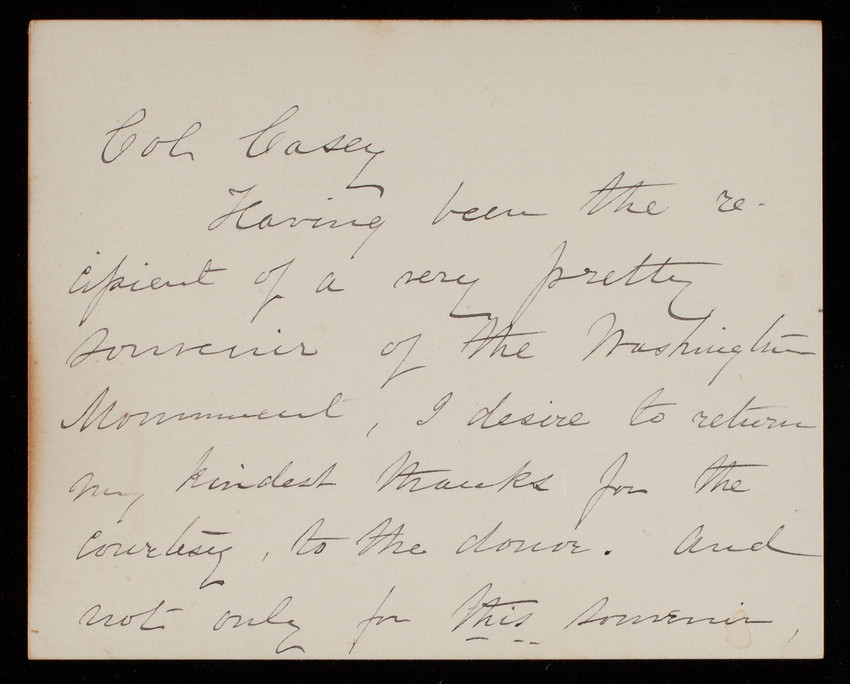 Col. Casey
Having been the re-
cipient of a very pretty
souvenir of the Washington
Monument, I desire to return
my kindest thanks for the
courtesy, to the donor. And
not only for this souvenir,